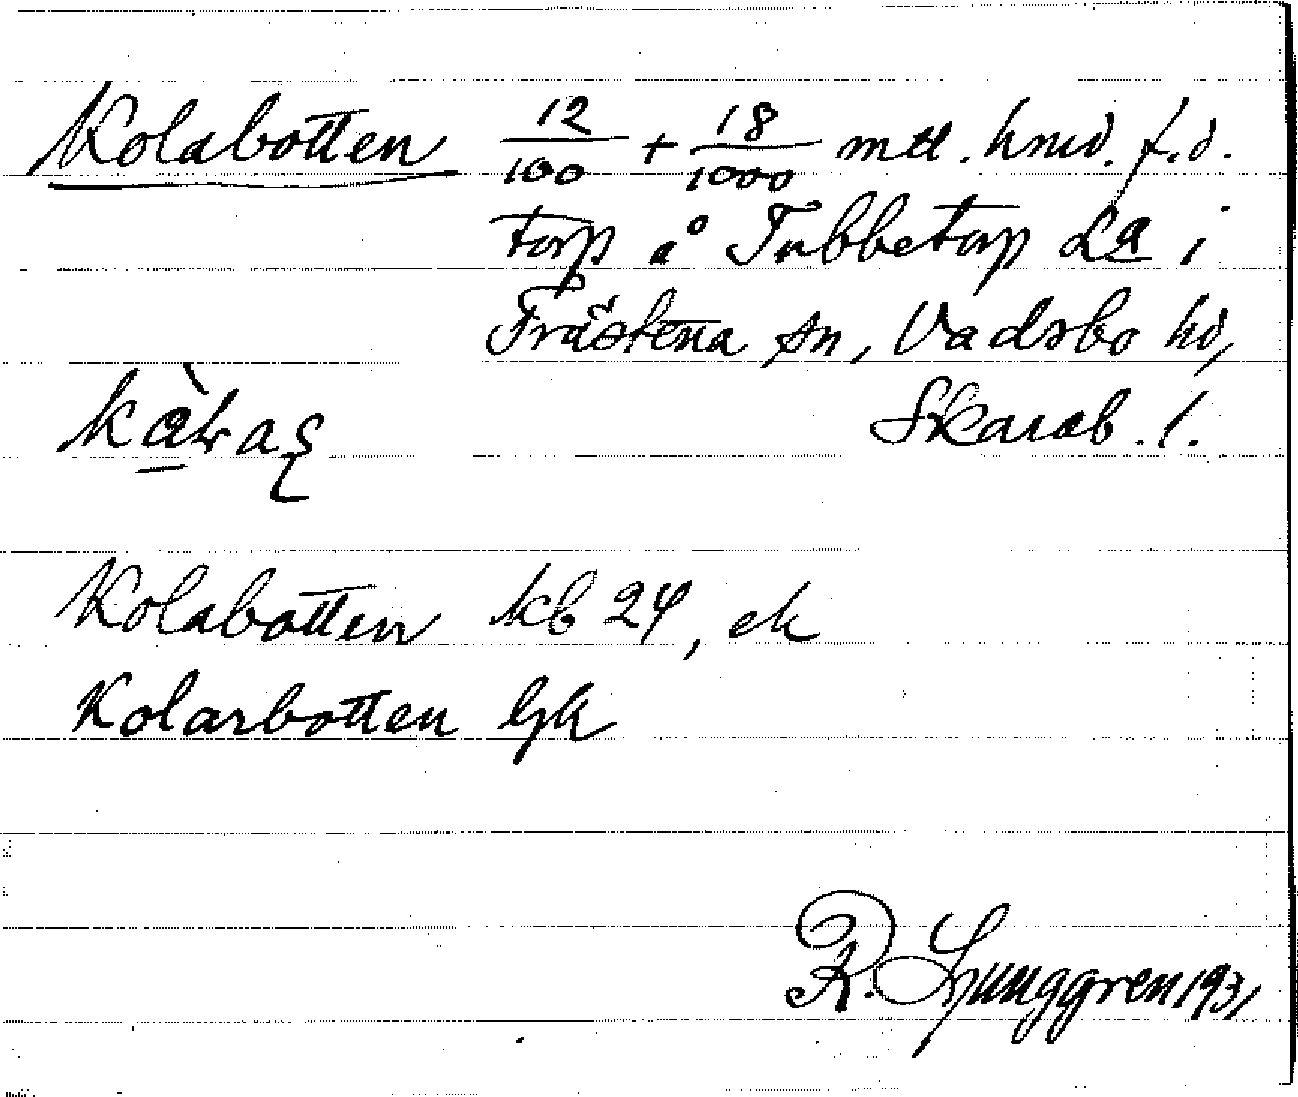 Kolabotten 12/100 + 18/1000 mtl. hmd. f.d.
torp å Tubbetorp La i
Frästena sn, Vadsbo hd,
Skarab. l.
Kolabotten kb 24, ek
Kolarbotten Gk
R. Ljunggren 1931